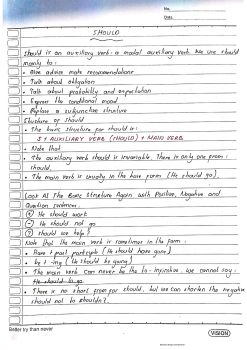 No.
Date.
SHOULD
Should is an auxiliary verb - a modal auxiliary verb. We use should
mainly to:
• Give advice make recommendations
• Talk about obligation
• Talk about probability and expectation
• Express the conditional mood
• Replace a subjunctive structure
Structure of Should
• The basic structure for should is:
S + AUXILIARY VERB (SHOULD) + MAIN VERB
• Note that
• The auxiliary verb should is invariable. There is only one form:
should.
• The main verb is usually in the base form (He should go).
Look At The Basic Structure Again with Positive, Negative and
Question sentences.
+ He should work
- He should not go
? Should we help?
Note that the main verb is sometimes in the form:
• Have + past participle (He should have gone)
• be + -ing (He should be going)
• The main verb can never be the to-infinitive. we cannot say:
He should to go
• There is no short form for should, but we can shorten the negative
should not to shouldn't.
Better try than never
VISION